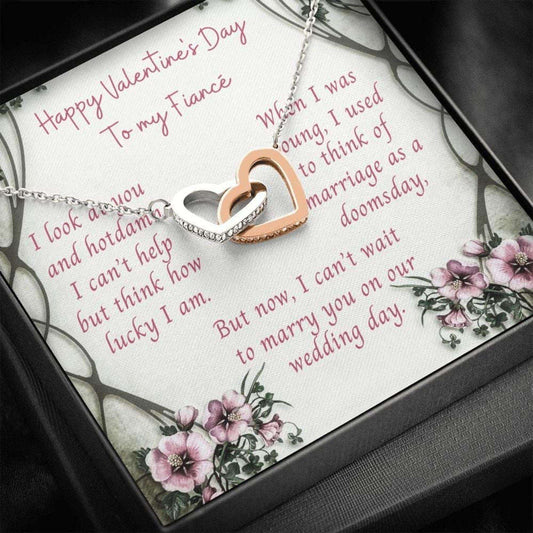 Happy Valentine's Day
To my Fiancé
When I was
oung, I used
to think of
marriage as a
doomsday,
I look at you
and hotdamn
I can't help
but think how
lucky I am.
But now, I can't wait
to marry you on our
wedding day.